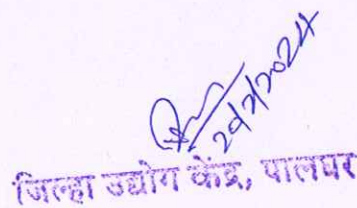 20/2/2024
जिल्हा उद्योग केंद्र, पालघर